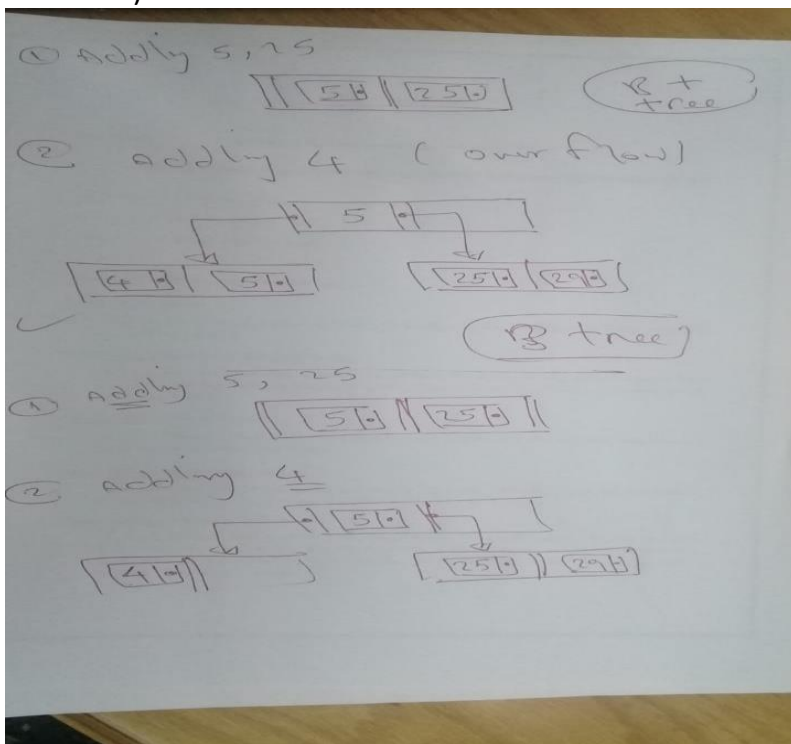 ① Adding 5, 25
5 25
B+
tree
② adding 4 (over flow)
5
4 5 25 29
B tree
① Adding 5, 25
5 25
② adding 4
5
4 25 29